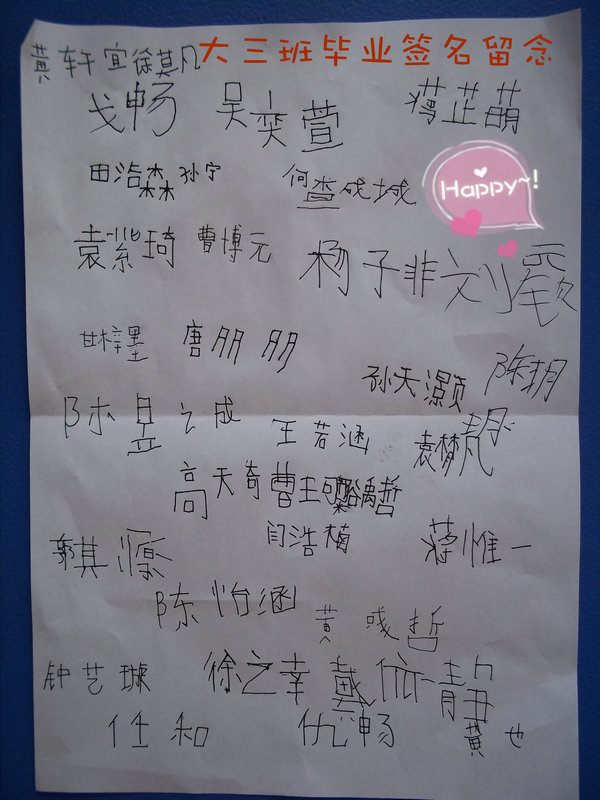 大三班毕业签名留念
黄轩宜 徐莫凡
戈畅 吴奕萱 蒋芷萌
田浩森 孙宁 何查成城
Happy~!
袁紫琦 曹博元 杨子非 刘
甘梓墨 唐朋朋
孙天灏 陈玥
陈昱之成 王若涵 袁梦凡
高天奇 曹 禹哲
郭其源 闫浩楠 蒋惟一
陈怡涵 黄彧哲
钟艺璇 徐之幸 戴依静
任和 仇畅 黄 也